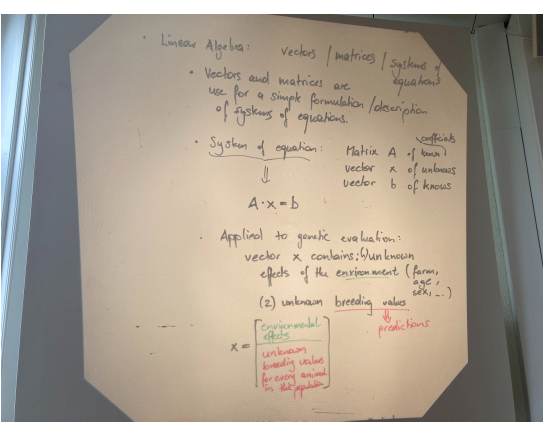 • Linear Algebra: vectors / matrices / systems of equations
• Vectors and matrices are
use for a simple formulation / description
of systems of equations.
• System of equation: Matrix A of known coefficients
vector x of unknows
vector b of knows
⇓
A·x = b
• Applied to genetic evaluation:
vector x contains: (1) unknown
effects of the environment (farm,
age,
sex, ...)
(2) unknown breeding values
⇓
predictions
x = [environmental
effects
unknown
breeding values
for every animal
in the population]